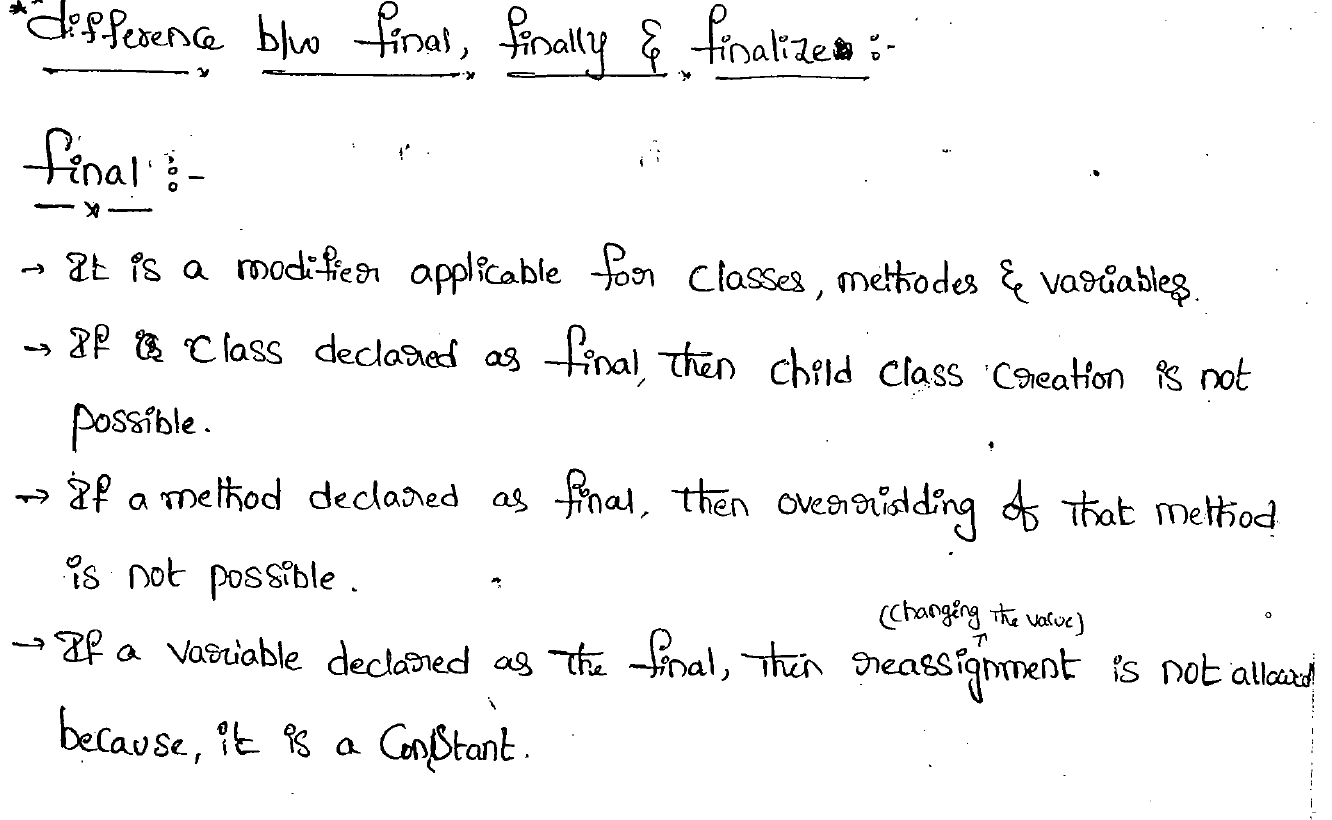 * difference b/w final, finally & finalize :-
final :-
→ It is a modifier applicable for classes, methodes & variables.
→ If a class declared as final, then child class creation is not
possible.
→ If a method declared as final, then overridding of that method
is not possible.
(changing the value)
→ If a variable declared as the final, then reassignment is not allowed
because, it is a constant.